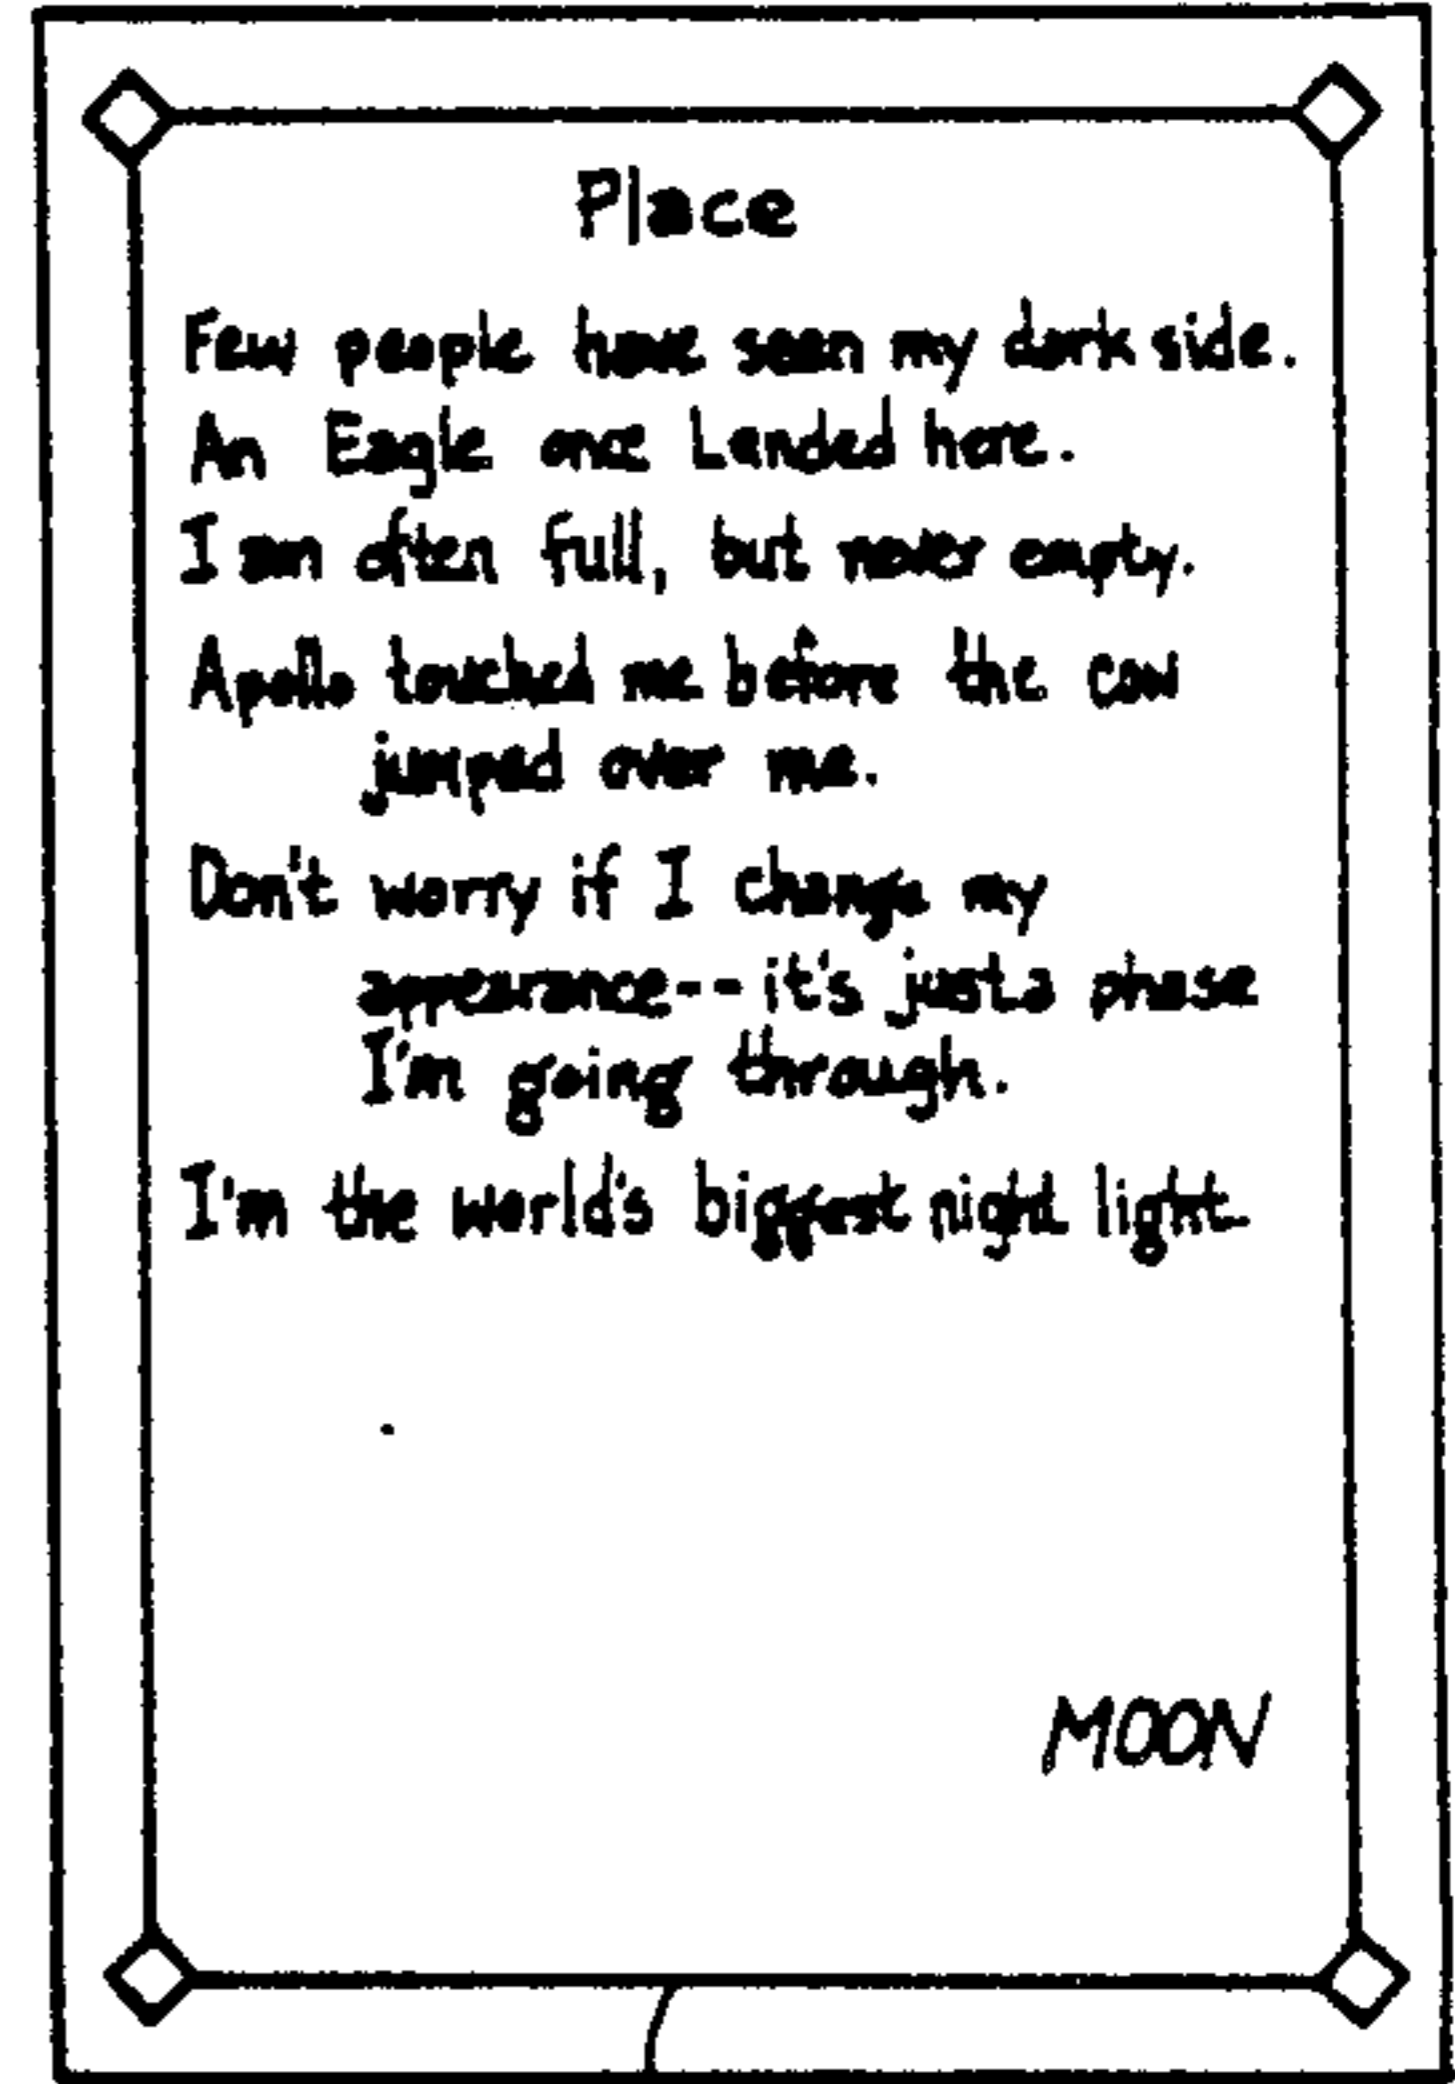 Place
Few people have seen my dark side.
An Eagle once Landed here.
I am often full, but never empty.
Apollo touched me before the cow
jumped over me.
Don't worry if I change my
appearance--it's just a phase
I'm going through.
I'm the world's biggest night light.
MOON